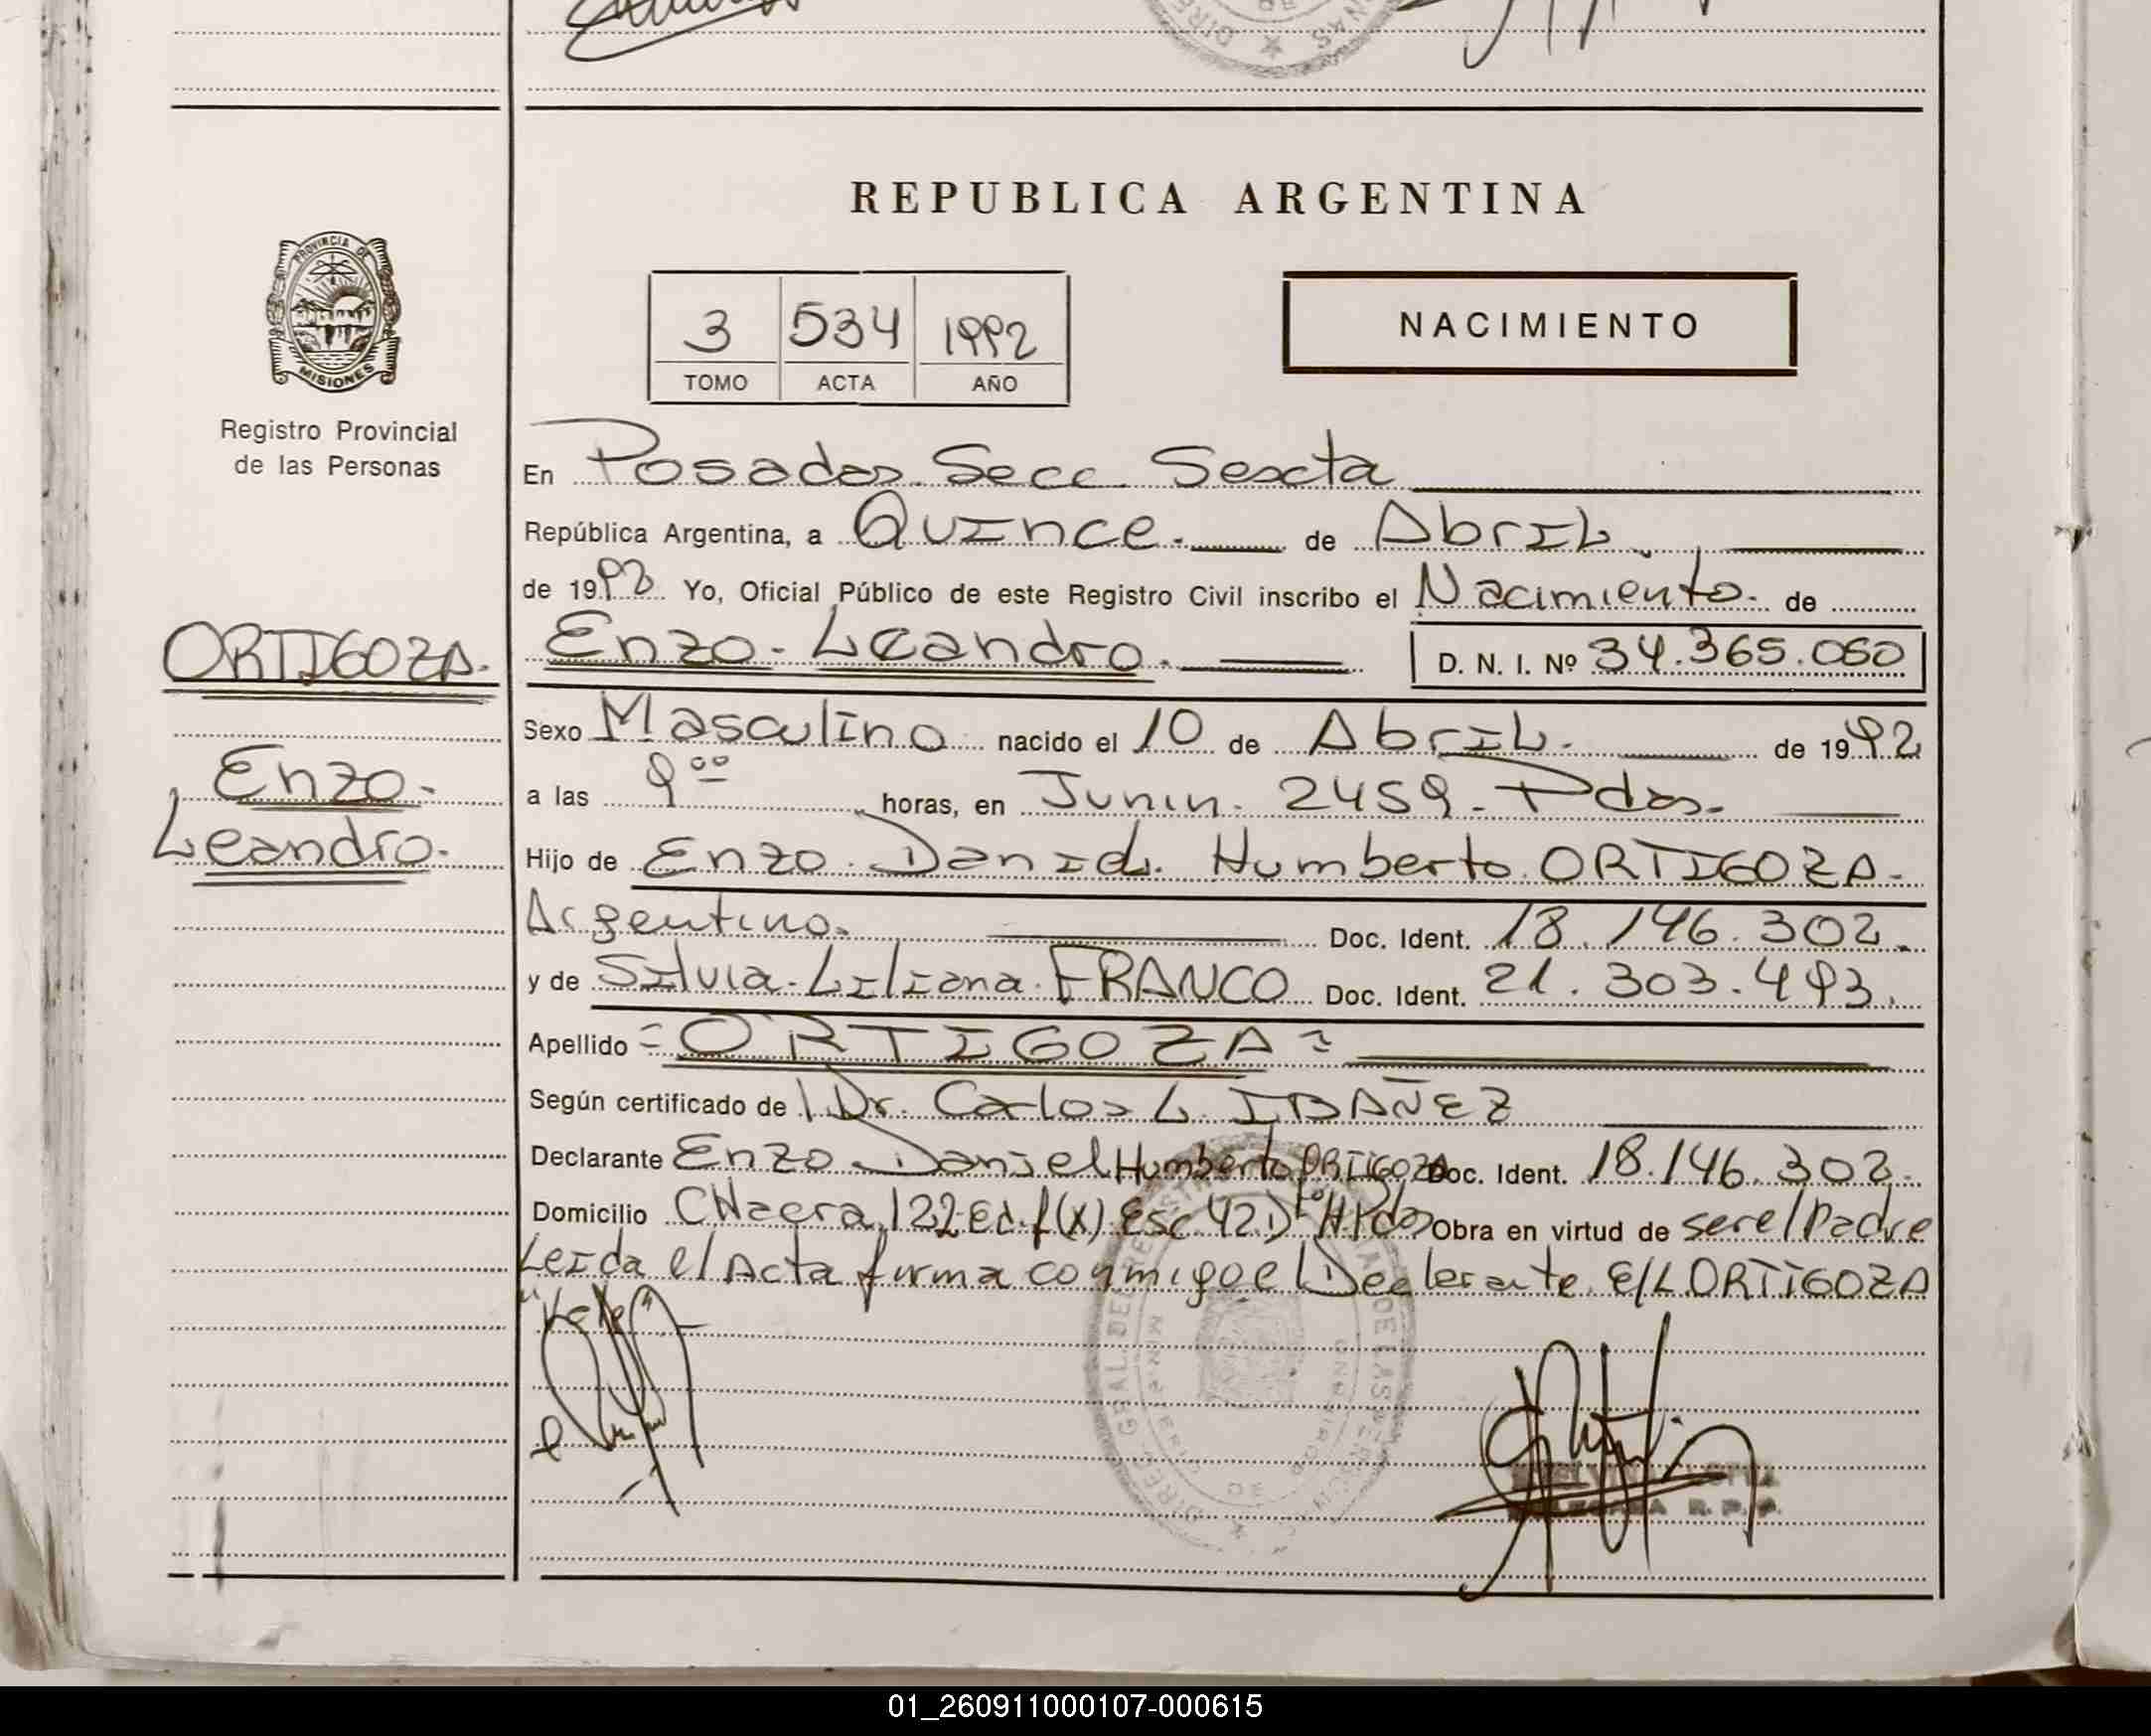 REPUBLICA ARGENTINA
PROVINCIA DE
MISIONES
Registro Provincial
de las Personas
3 534 1992
TOMO ACTA AÑO
NACIMIENTO
En Posadas. Secc. Sexta
República Argentina, a Quince. de Abril.
de 1992. Yo, Oficial Público de este Registro Civil inscribo el Nacimiento. de
ORTIGOZA.
Enzo. Leandro.
D. N. I. Nº 34.365.060
Sexo Masculino nacido el 10 de Abril. de 1992
Enzo.
Leandro.
a las 9⁰⁰ horas, en Junin. 2459. Pdas.
Hijo de Enzo. Daniel. Humberto ORTIGOZA.
Argentino. Doc. Ident. 18.146.302.
y de Silvia. Liliana. FRANCO Doc. Ident. 21.303.493.
Apellido = ORTIGOZA =
Según certificado de Dr. Carlos L. IBAÑEZ
Declarante Enzo Daniel Humberto ORTIGOZA Doc. Ident. 18.146.302.
Domicilio CHacra 122 Ed. f(x) Esc. 42 Pdas Obra en virtud de ser el Padre
Leida el Acta firma conmigo el Declarante. E/L ORTIGOZA
"Vale"
R. P. P.
01_260911000107-000615